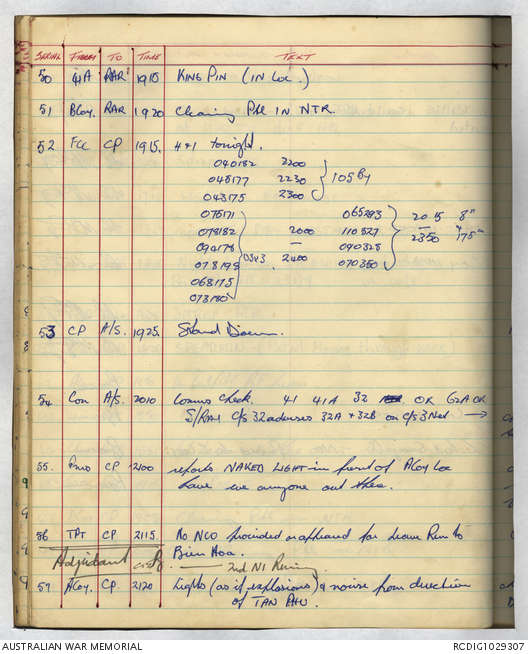 SERIAL FROM TO TIME TEXT
50 41A RAR 1910 KING PIN (IN LOC.)
51 BCoy. RAR 1920 Clearing Ptl IN NTR.
52 FCC CP 1915. H & I tonight.
040182 2200
045177 2230 105 By
043175 2300
075171 065293 2015 8"
079182 2000 110327 — 175m
094178 — 090328 2350
078199 2400 070350
068175
073180
53 CP A/S. 1925. Stand Down.
54 Con A/S. 2010 Comms Check. 41 41A 32 OK G2A OK
5/RAR C/S 32 32A + 32B on C/S 3 Net →
55. CP 2100 reports NAKED LIGHT in front of A Coy Loc
have we anyone out there.
56 TPT CP 2115. No NCO provided or appeared for Leave Run to
Bien Hoa.
Adjutant — 2nd NI
57 ACoy. CP 2120 Lights (as if explosions) & noise from direction
of TAN PHU.
AUSTRALIAN WAR MEMORIAL RCDIG1029307